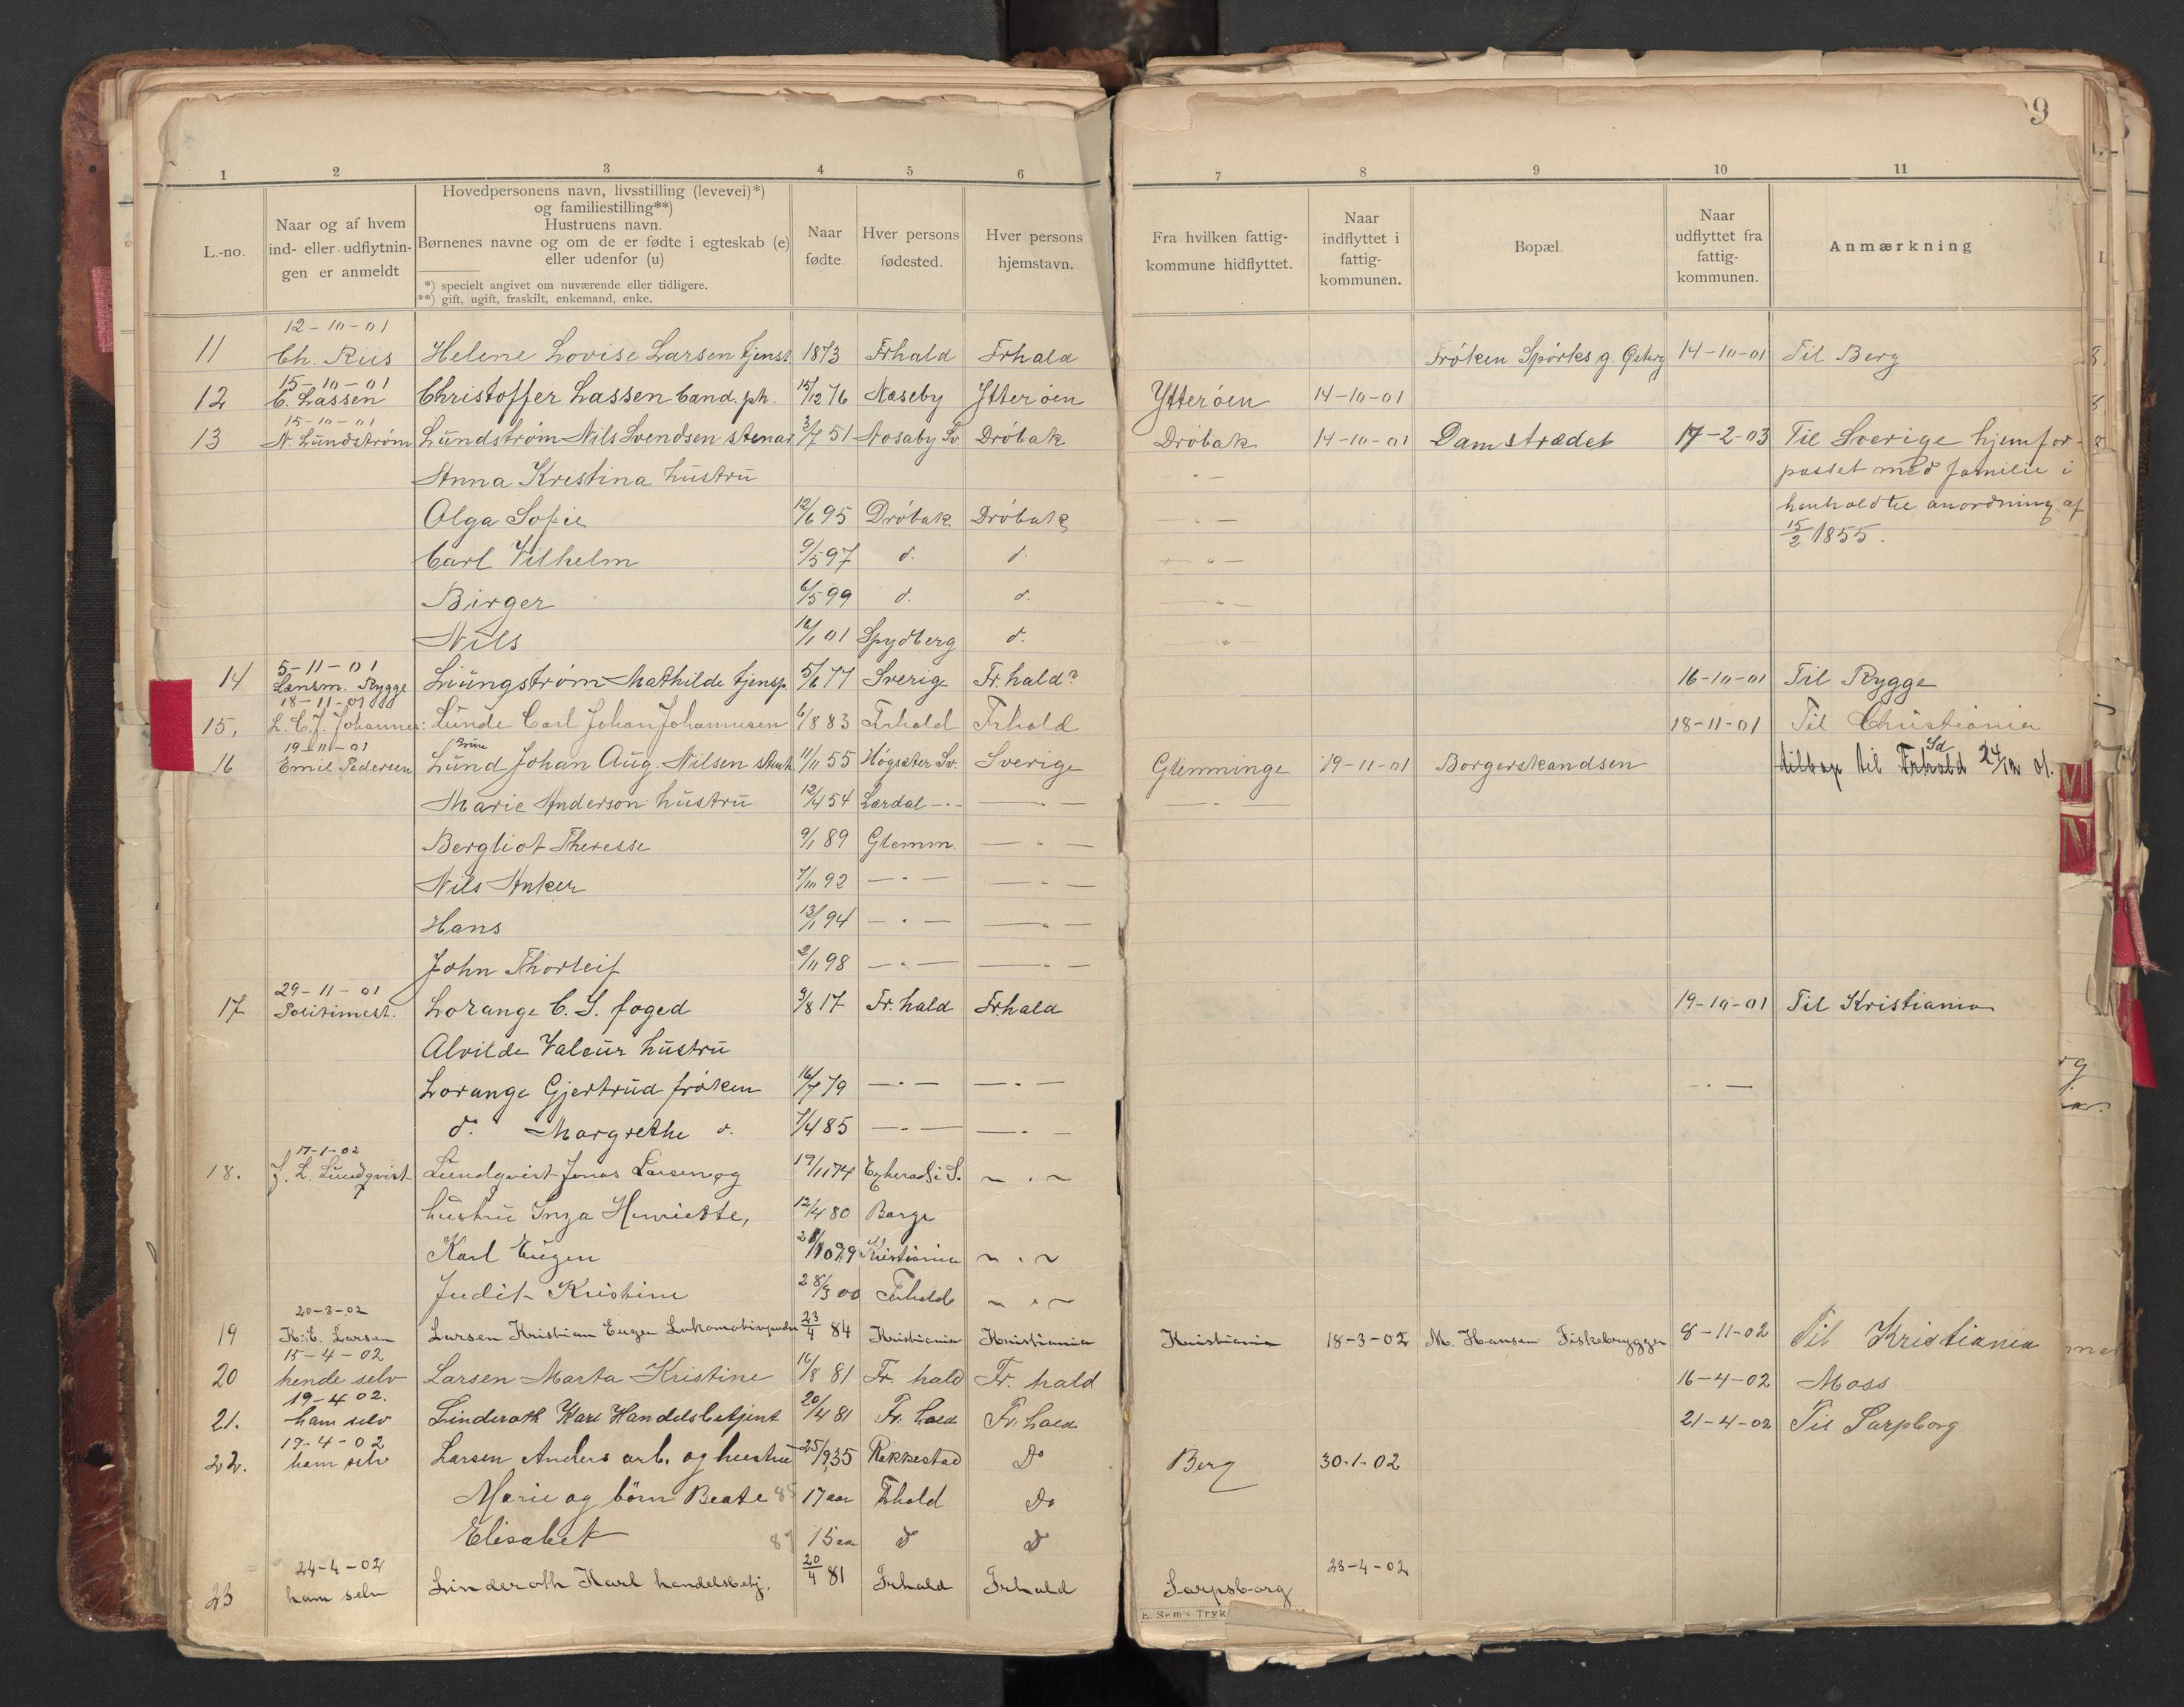 9
1 2 3 4 5 6 7 8 9 10 11
L.-no.
Naar og af hvem
ind- eller udflytnin-
gen er anmeldt
Hovedpersonens navn, livsstilling (levevei)*)
og familiestilling**)
Hustruens navn.
Børnenes navne og om de er fødte i egteskab (e)
eller udenfor (u)
*) specielt angivet om nuværende eller tidligere.
**) gift, ugift, fraskilt, enkemand, enke.
Naar
fødte
Hver persons
fødested.
Hver persons
hjemstavn.
Fra hvilken fattig-
kommune hidflyttet.
Naar
indflyttet i
fattig-
kommunen.
Bopæl.
Naar
udflyttet fra
fattig-
kommunen.
Anmærkning
12-10-01
11 Ch. Riis Helene Lovise Larsen tjenst 1873 Frhald Frhald Frøken Spørks g. 14-10-01 Til Berg
15-10-01
12 C. Lassen Christoffer Lassen Cand. ph. 15/12 76 Næseby Ytterøen Ytterøen 14-10-01
15-10-01
13 N. Lundstrøm Lundstrøm Nils Svendsen stenar 3/7 51 Nosaby Sv. Drøbak Drøbak 14-10-01 Damstrædet 17-2-03 Til Sverige hjemfor-
Anna Kristina hustru - " - passet med familie i
Olga Sofie 12/6 95 Drøbak Drøbak - " - henhold til anordning af
Carl Vilhelm 9/5 97 d. d. - " - 15/2 1855.
Birger 6/5 99 d. d. - " -
Nils 16/1 01 Spydberg d. - " -
5-11-01
14 Lensm. Rygge Liungstrøm Mathilde tjensp. 5/6 77 Sverig Fr.hald? 16-10-01 Til Rygge
18-11-01
15. L. C. J. Johannes: Lunde Carl Johan Johannesen 6/8 83 Frhald Frhald 18-11-01 Til Christiania
19-11-01
16 Emil Pedersen Lund Johan Aug. Nilsen stenh. 11/11 55 Høgsæter Sv. Sverige Glemminge 19-11-01 Borgerskandsen tilbage til Frhald 24/12 01.
Marie Anderson hustru 12/4 54 Lardal - " - - " - - " -
Bergliot Theresse 9/1 89 Glemm. - " -
Nils Anker 7/10 92 - " - - " -
Hans 13/1 94 - " - - " -
John Thorleif 2/11 98 - " - - " -
29-11-01
17 Politimest. Lorange C. S. foged 9/8 17 Fr. hald Fr.hald 19-10-01 Til Kristiania
Alvilde Valeur hustru
Lorange Gjertrud frøken 16/7 79 - " - - " - - " -
d. Margrethe d. 7/4 85 - " - - " -
17-1-02
18. J. L. Lundqvist Lundqvist Jonas Larsen og 19/11 74 - " -
hustru Inga Henriette, 12/4 80 Borge
Karl Eugen Kristiania - " -
Judit Kristine 28/3 00 Frhald - " -
20-3-02
19 K. E. Larsen Larsen Kristian Eugen Lokomotivpudser 23/4 84 Kristiania Kristiania Kristiania 18-3-02 M. Hansen Fiskebryggen 8-11-02 Til Kristiania
15-4-02
20 hende selv Larsen Marta Kristine 16/8 81 Fr. hald Fr. hald 16-4-02 Moss
19-4 02.
21. ham selv Linderoth Karl Handelsbetjent 20/4 81 Fr. hald Fr. hald 21-4-02 Til Sarpborg
19-4-02
22. ham selv Larsen Anders arb. og hustru 25/9 35 Rakkestad Do Berg 30-1-02
Marie og børn Beate 85 17 aar Fhald Do
Elisabet 87 15 aar d d
24-4-02
23 ham selv Linderoth Karl handelsbetj. 20/4 81 Frhald Frhald Sarpsborg 23-4-02
E. Sem's Tryk